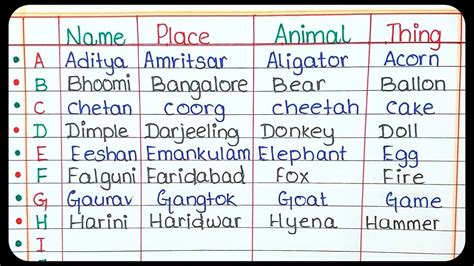 Name Place Animal Thing
A Aditya Amritsar Aligator Acorn
B Bhoomi Bangalore Bear Ballon
C chetan coorg cheetah cake
D Dimple Darjeeling Donkey Doll
E Eeshan Emankulam Elephant Egg
F Falguni Faridabad Fox Fire
G Gaurav Gangtok Goat Game
H Harini Haridwar Hyena Hammer
I